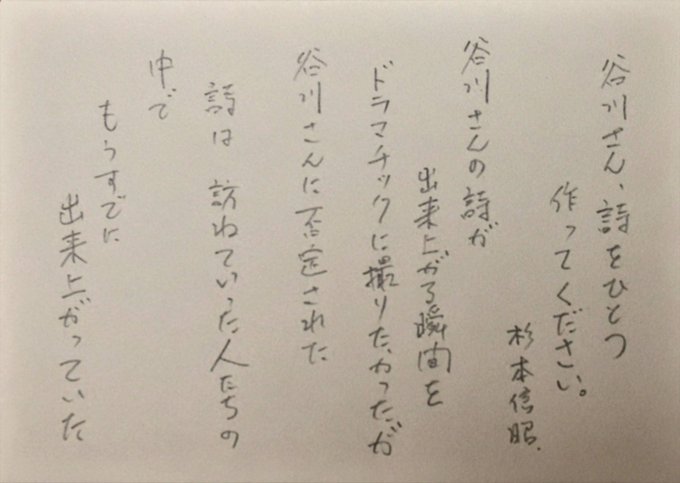 谷川さん、詩をひとつ
作ってください。
杉本信昭.
谷川さんの詩が
出来上がる瞬間を
ドラマチックに撮りたかったが
谷川さんに否定された
詩は訪ねていった人たちの
中で
もうすでに
出来上がっていた